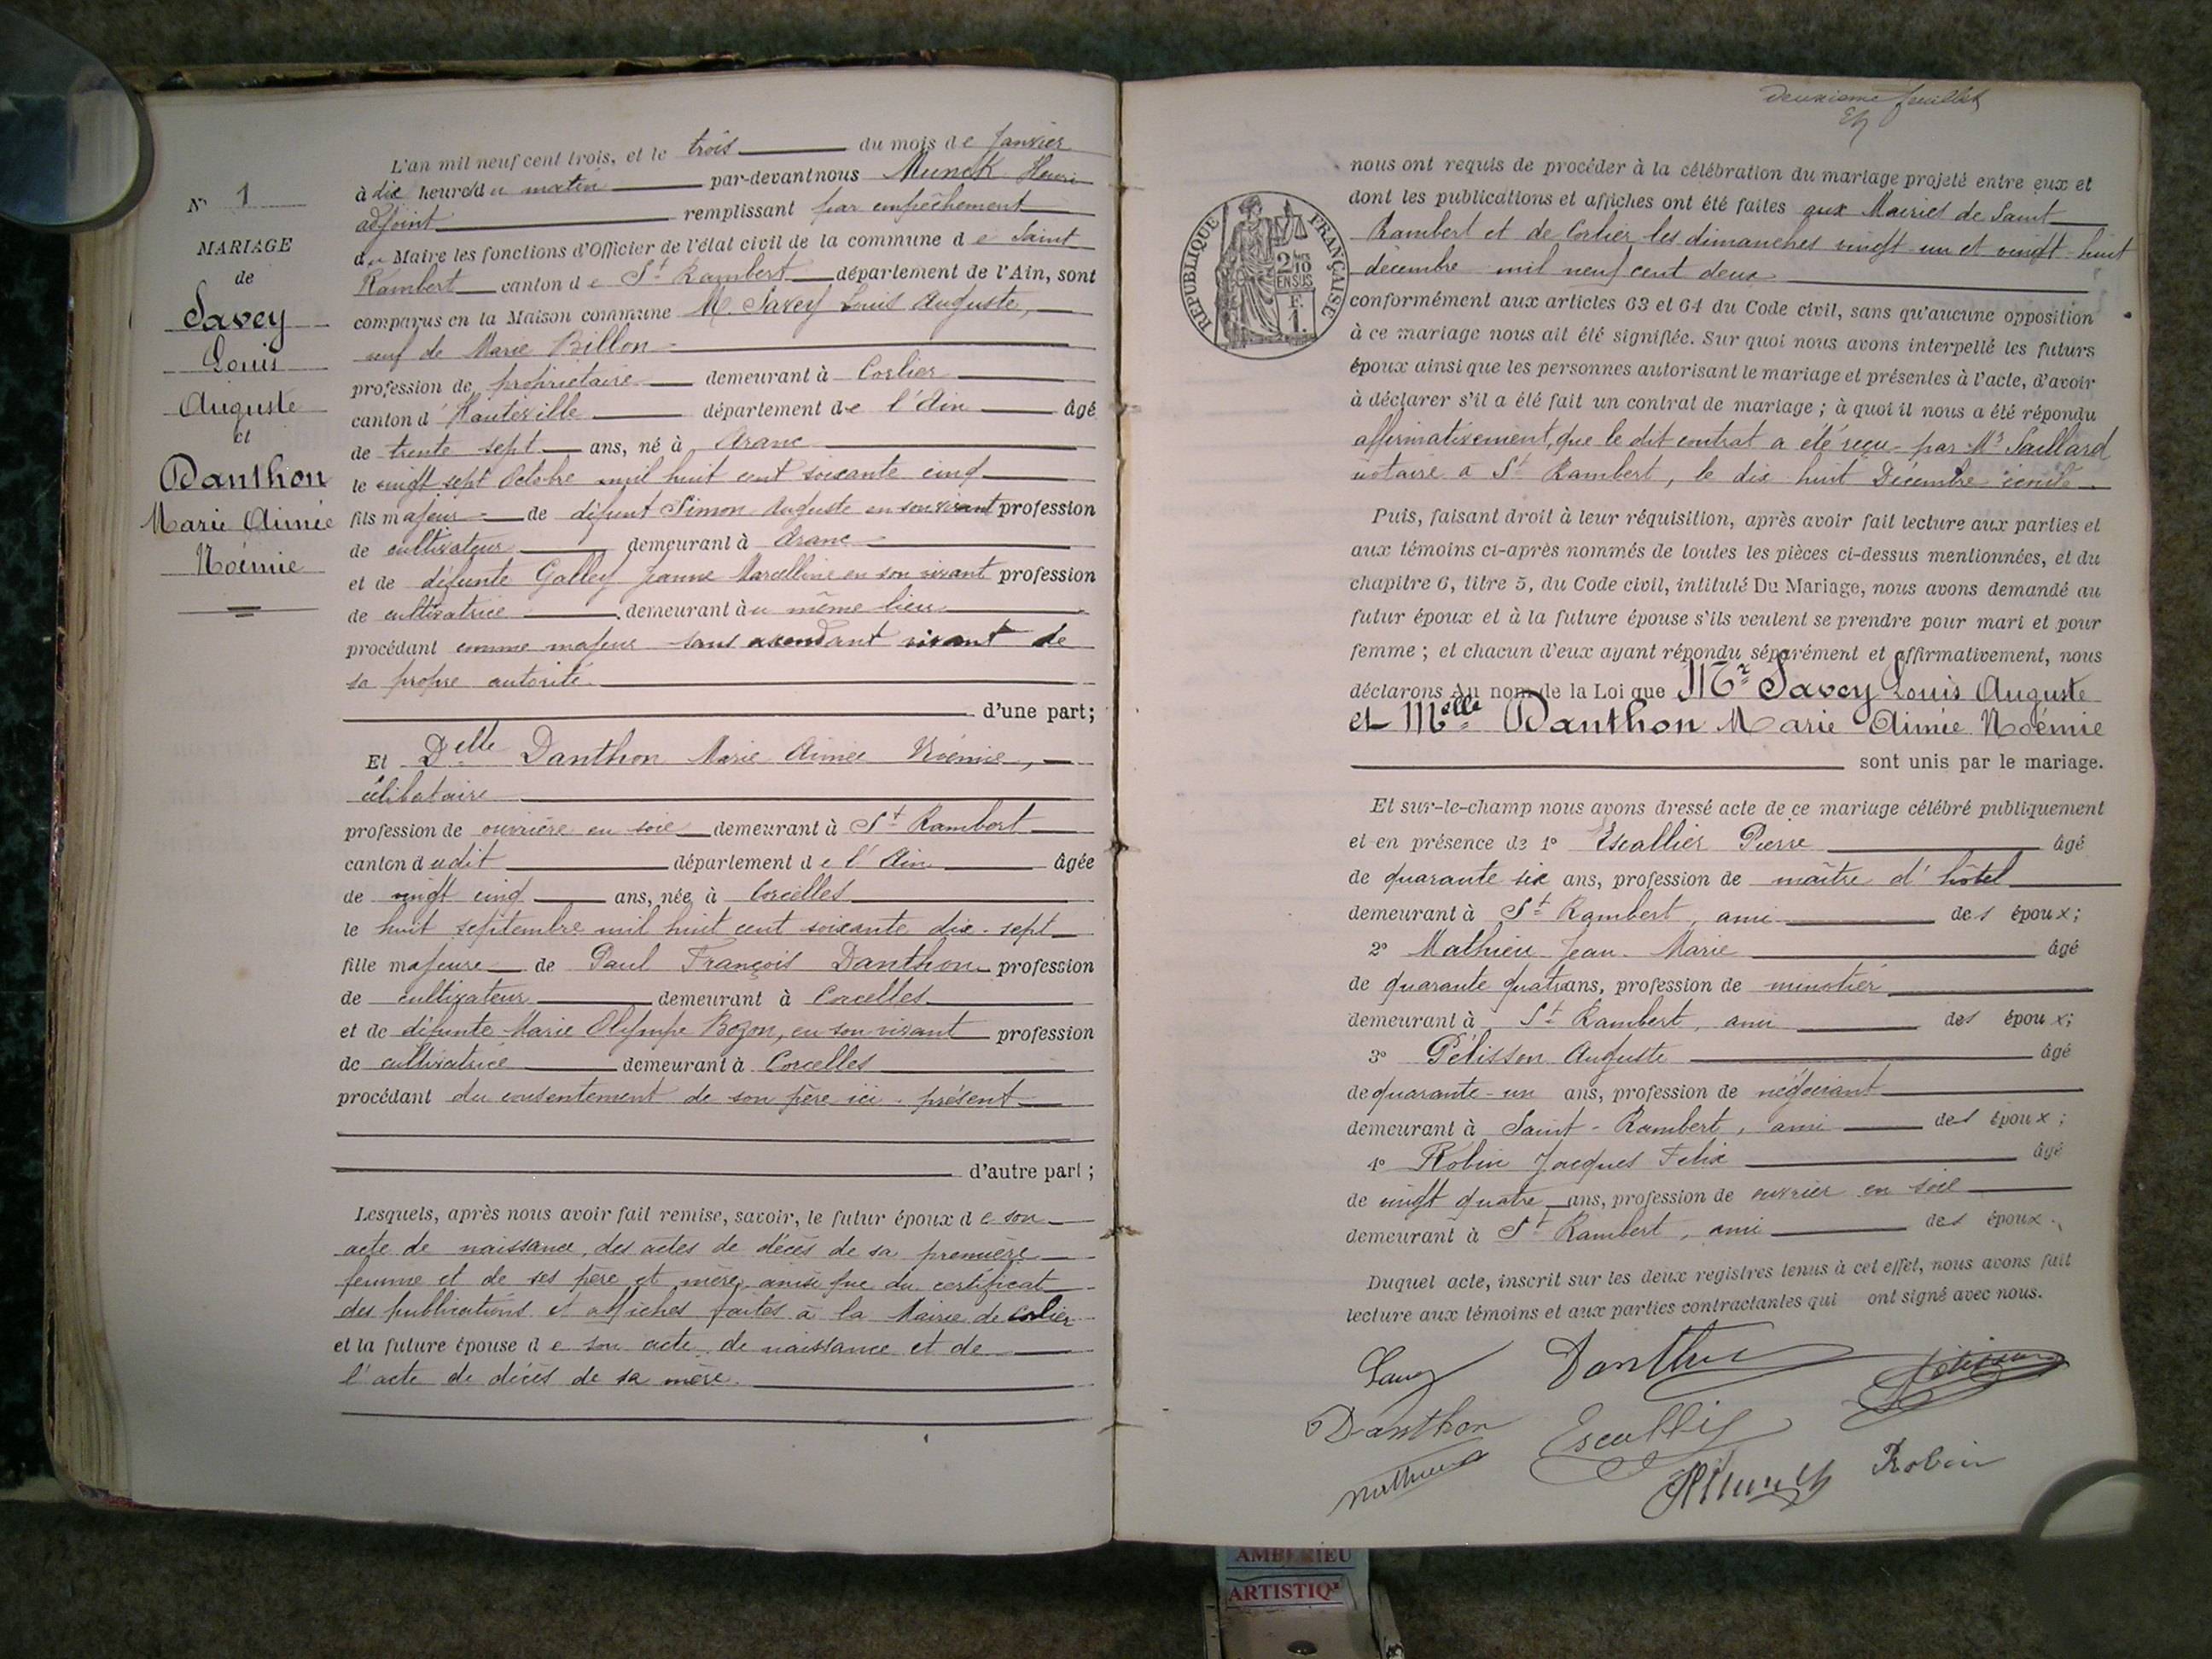 N° 1
MARIAGE
de
Savey
Louis
Auguste
et
Danthon
Marie Aimée
Noémie
L'an mil neuf cent trois, et le trois du mois de Janvier
à dix heures du matin par-devant nous Munck Henri
adjoint remplissant par empêchement
du Maire les fonctions d'Officier de l'état civil de la commune de Saint
Rambert canton de St Rambert département de l'Ain, sont
comparus en la Maison commune M. Savey Louis Auguste,
veuf de Marie Billon
profession de propriétaire demeurant à Corlier
canton d'Hauteville département de l'Ain âgé
de trente sept ans, né à Aranc
le vingt sept Octobre mil huit cent soixante cinq
fils majeur de défunt Simon Auguste en son vivant profession
de cultivateur demeurant à Aranc
et de défunte Galley Jeanne Marcelline en son vivant profession
de cultivatrice demeurant au même lieu
procédant comme majeur sans ascendant vivant de
sa propre autorité
d'une part;
Et Delle Danthon Marie Aimée Noémie,
célibataire
profession de ouvrière en soie demeurant à St Rambert
canton dudit département de l'Ain âgée
de vingt cinq ans, née à Corcelles
le huit septembre mil huit cent soixante dix-sept
fille majeure de Paul François Danthon profession
de cultivateur demeurant à Corcelles
et de défunte Marie Olympe Bozon, en son vivant profession
de cultivatrice demeurant à Corcelles
procédant du consentement de son père ici présent
d'autre part;
Lesquels, après nous avoir fait remise, savoir, le futur époux de son
acte de naissance, des actes de décès de sa première
femme et de ses père et mère, ainsi que du certificat
des publications et affiches faites à la Mairie de Corlier
et la future épouse de son acte de naissance et de
l'acte de décès de sa mère.
Deuxième feuillet
RÉPUBLIQUE FRANÇAISE
2/10
EN SUS
F.
1.
nous ont requis de procéder à la célébration du mariage projeté entre eux et
dont les publications et affiches ont été faites aux Mairies de Saint
Rambert et de Corlier les dimanches vingt-un et vingt-huit
décembre mil neuf cent deux
conformément aux articles 63 et 64 du Code civil, sans qu'aucune opposition
à ce mariage nous ait été signifiée. Sur quoi nous avons interpellé les futurs
époux ainsi que les personnes autorisant le mariage et présentes à l'acte, d'avoir
à déclarer s'il a été fait un contrat de mariage; à quoi il nous a été répondu
affirmativement, que le dit contrat a été reçu par Me Saillard
notaire à St Rambert, le dix huit Décembre
Puis, faisant droit à leur réquisition, après avoir fait lecture aux parties et
aux témoins ci-après nommés de toutes les pièces ci-dessus mentionnées, et du
chapitre 6, titre 5, du Code civil, intitulé Du Mariage, nous avons demandé au
futur époux et à la future épouse s'ils veulent se prendre pour mari et pour
femme; et chacun d'eux ayant répondu séparément et affirmativement, nous
déclarons Au nom de la Loi que Mr Savey Louis Auguste
et Melle Danthon Marie Aimée Noémie
sont unis par le mariage.
Et sur-le-champ nous avons dressé acte de ce mariage célébré publiquement
et en présence de 1° Escallier Pierre âgé
de quarante six ans, profession de maître d'hôtel
demeurant à St Rambert, ami des époux;
2° Mathieu Jean-Marie âgé
de quarante quatre ans, profession de minotier
demeurant à St Rambert, ami des époux;
3° Pélisson Auguste âgé
de quarante-un ans, profession de négociant
demeurant à Saint-Rambert, ami des époux;
4° Robin Jacques Felix âgé
de vingt quatre ans, profession de ouvrier en soie
demeurant à St Rambert, ami des époux.
Duquel acte, inscrit sur les deux registres tenus à cet effet, nous avons fait
lecture aux témoins et aux parties contractantes qui ont signé avec nous.
Savey Danthon Pélisson
Danthon Escallier
Mathieu HMunck Robin
AMBERIEU
ARTISTIQ